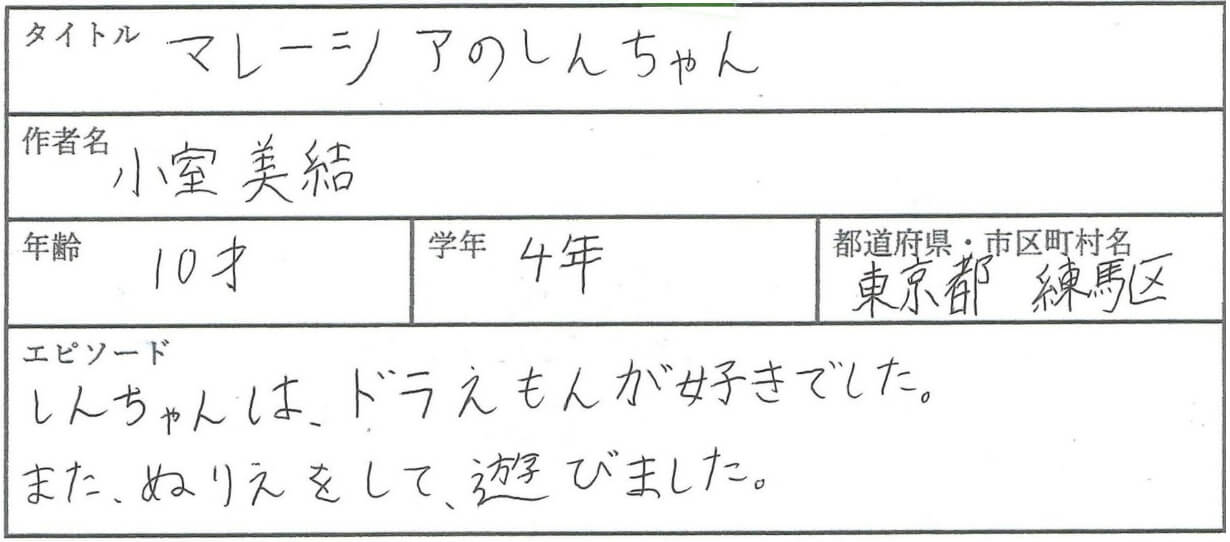 タイトル マレーシアのしんちゃん
作者名 小室美結
年齢 10才 学年 4年 都道府県・市区町村名 東京都 練馬区
エピソード
しんちゃんは、ドラえもんが好きでした。
また、ぬりえをして、遊びました。